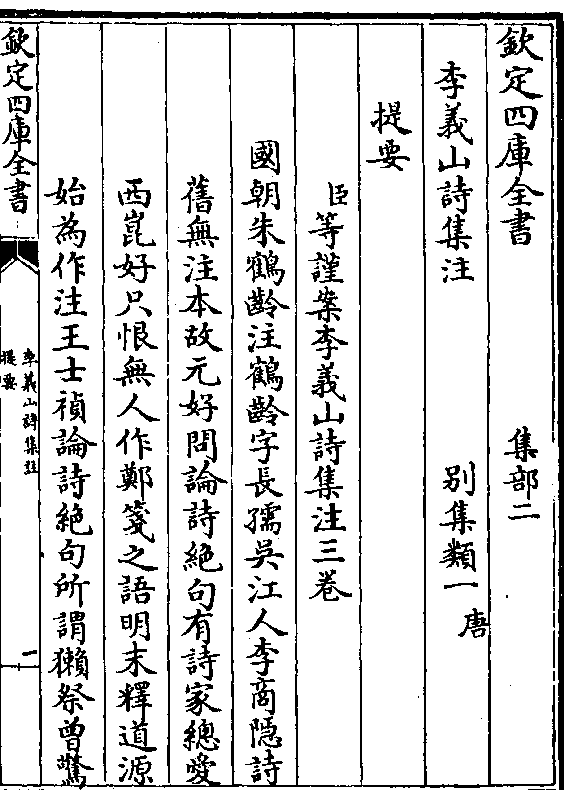 欽定四庫全書　集部二
李義山詩集注　別集類一唐
提要
臣等謹案李義山詩集注三卷
國朝朱鶴齡注鶴齡字長孺吳江人李商隱詩
舊無注本故元好問論詩絕句有詩家總愛
西崑好只恨無人作鄭箋之語明末釋道源
始為作注王士禎論詩絕句所謂獺祭曾驚
欽定四庫全書
李義山詩集注
提要
一